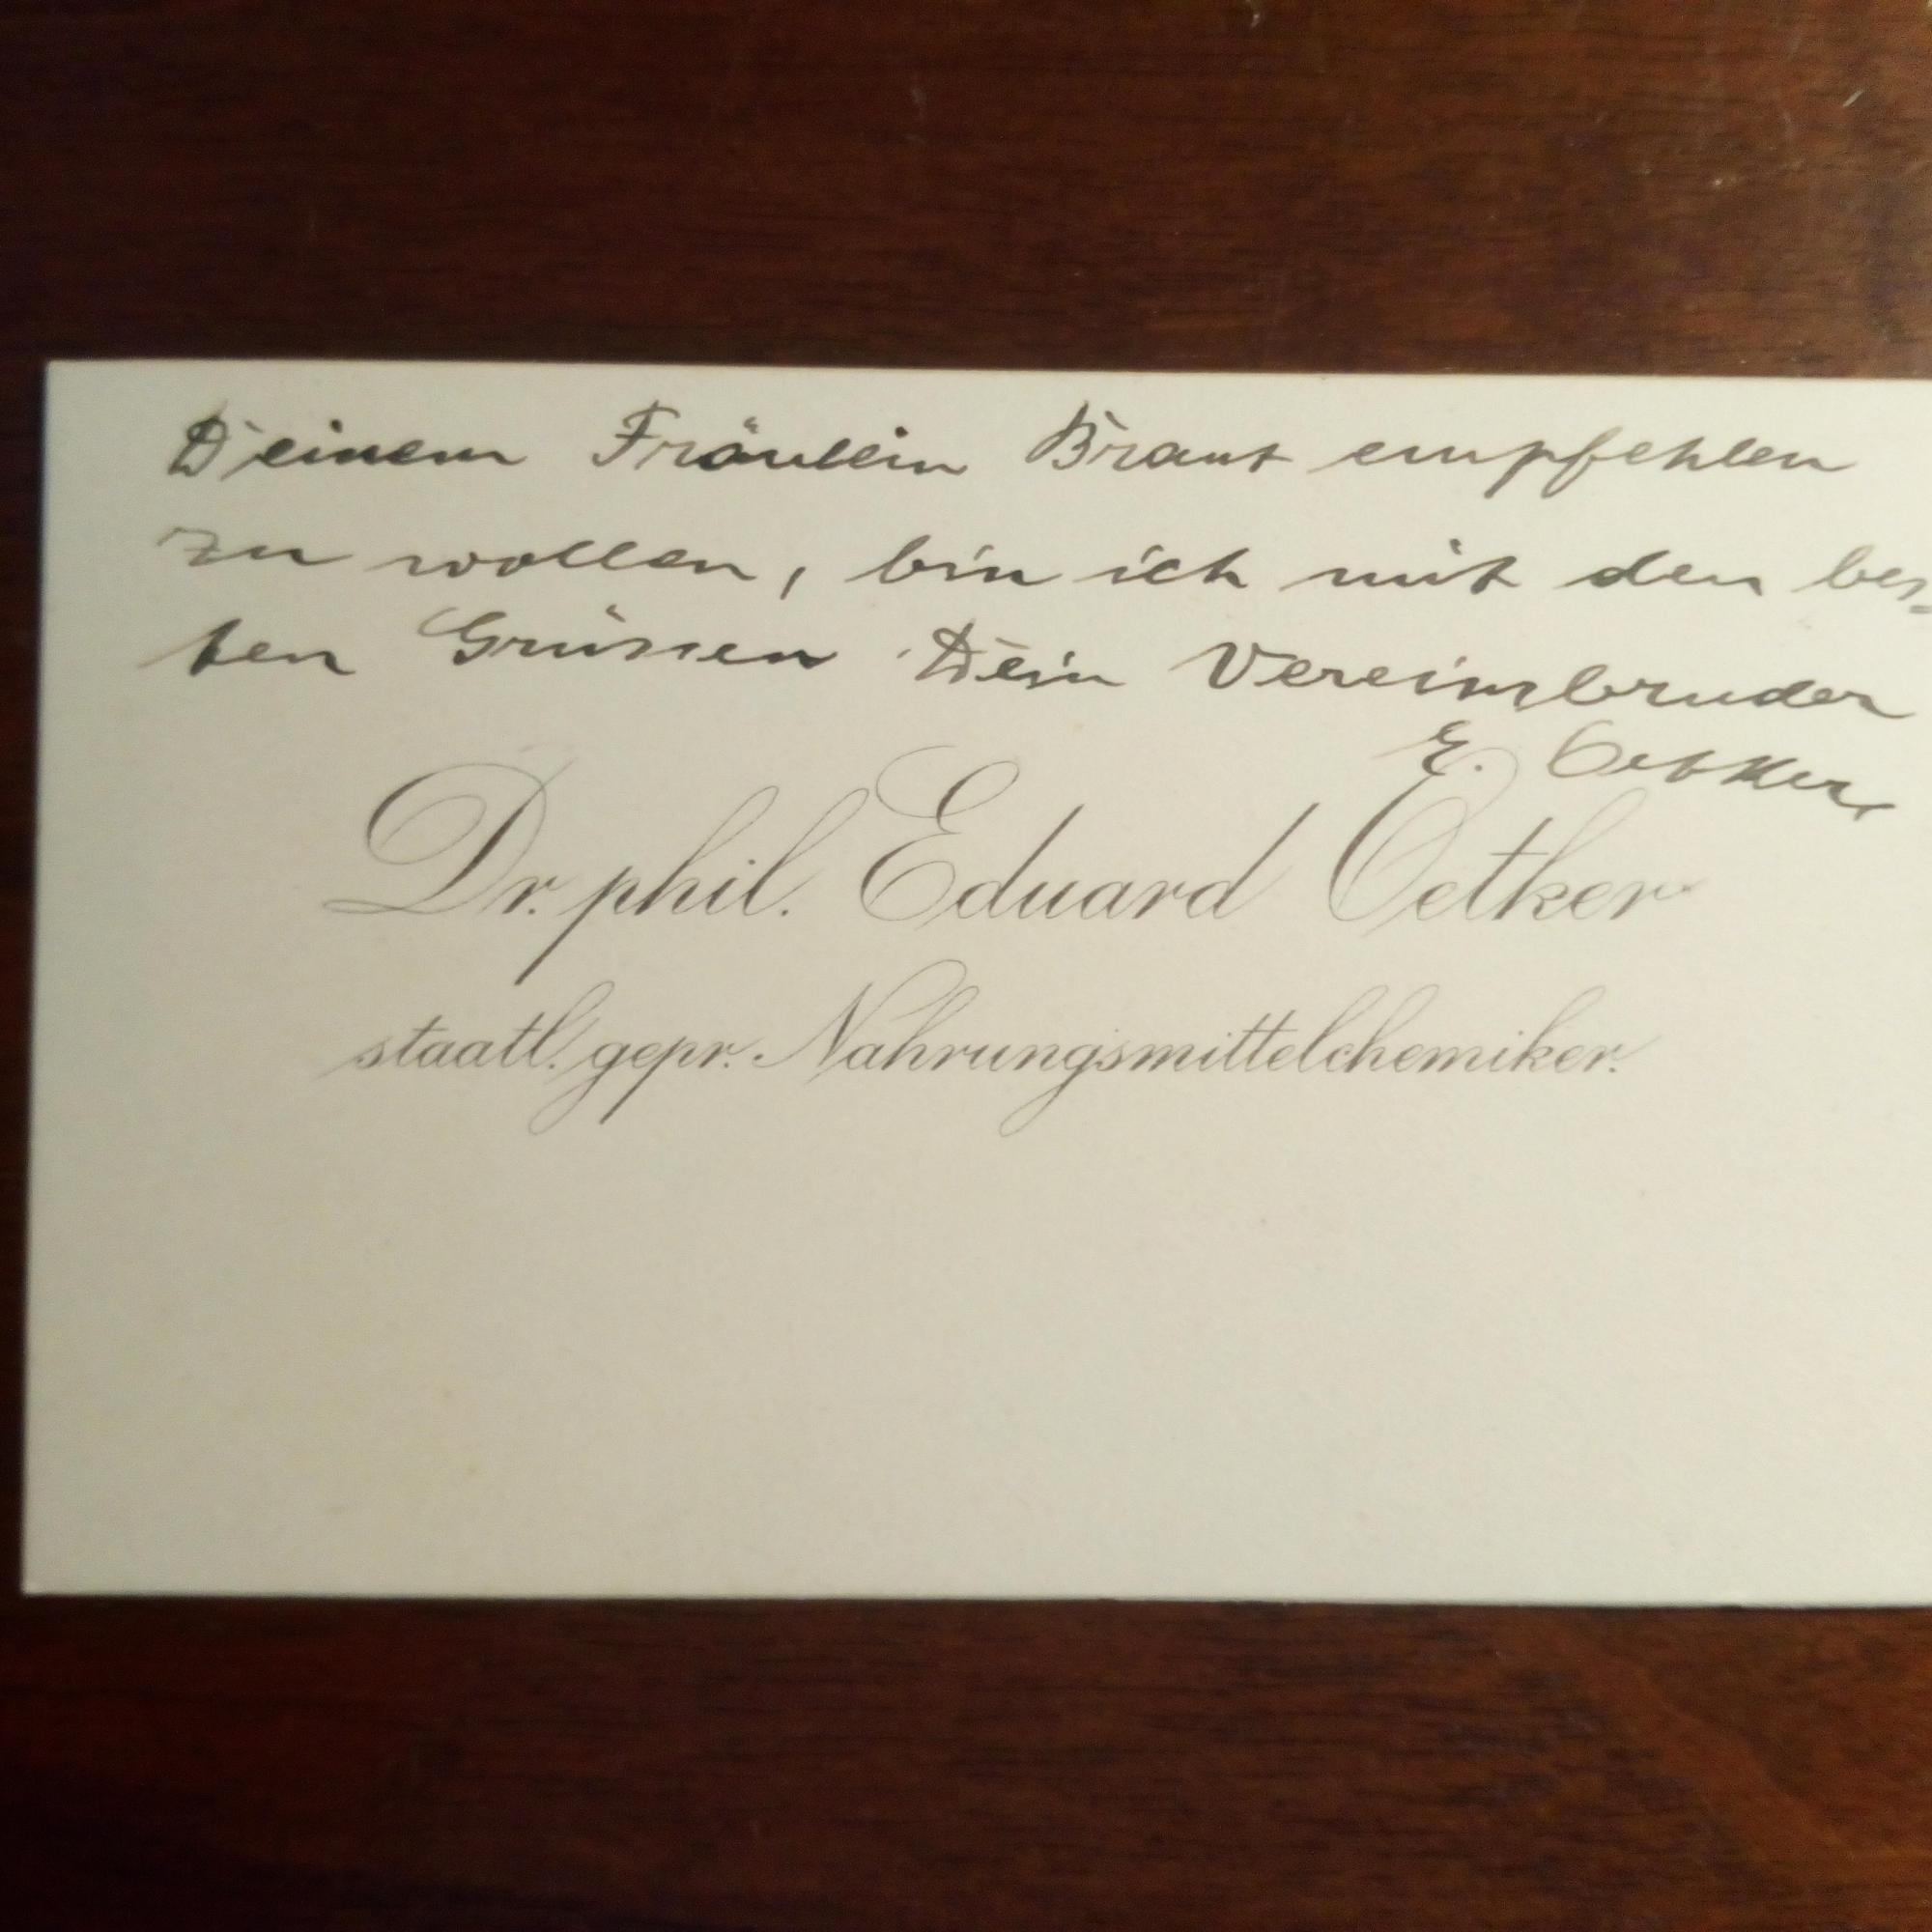 Deinem Fräulein Braut empfehlen
zu wollen, bin ich mit den bes-
ten Grüssen Dein Vereinsbruder
E. Oetker
Dr. phil. Eduard Oetker
staatl. gepr. Nahrungsmittelchemiker.